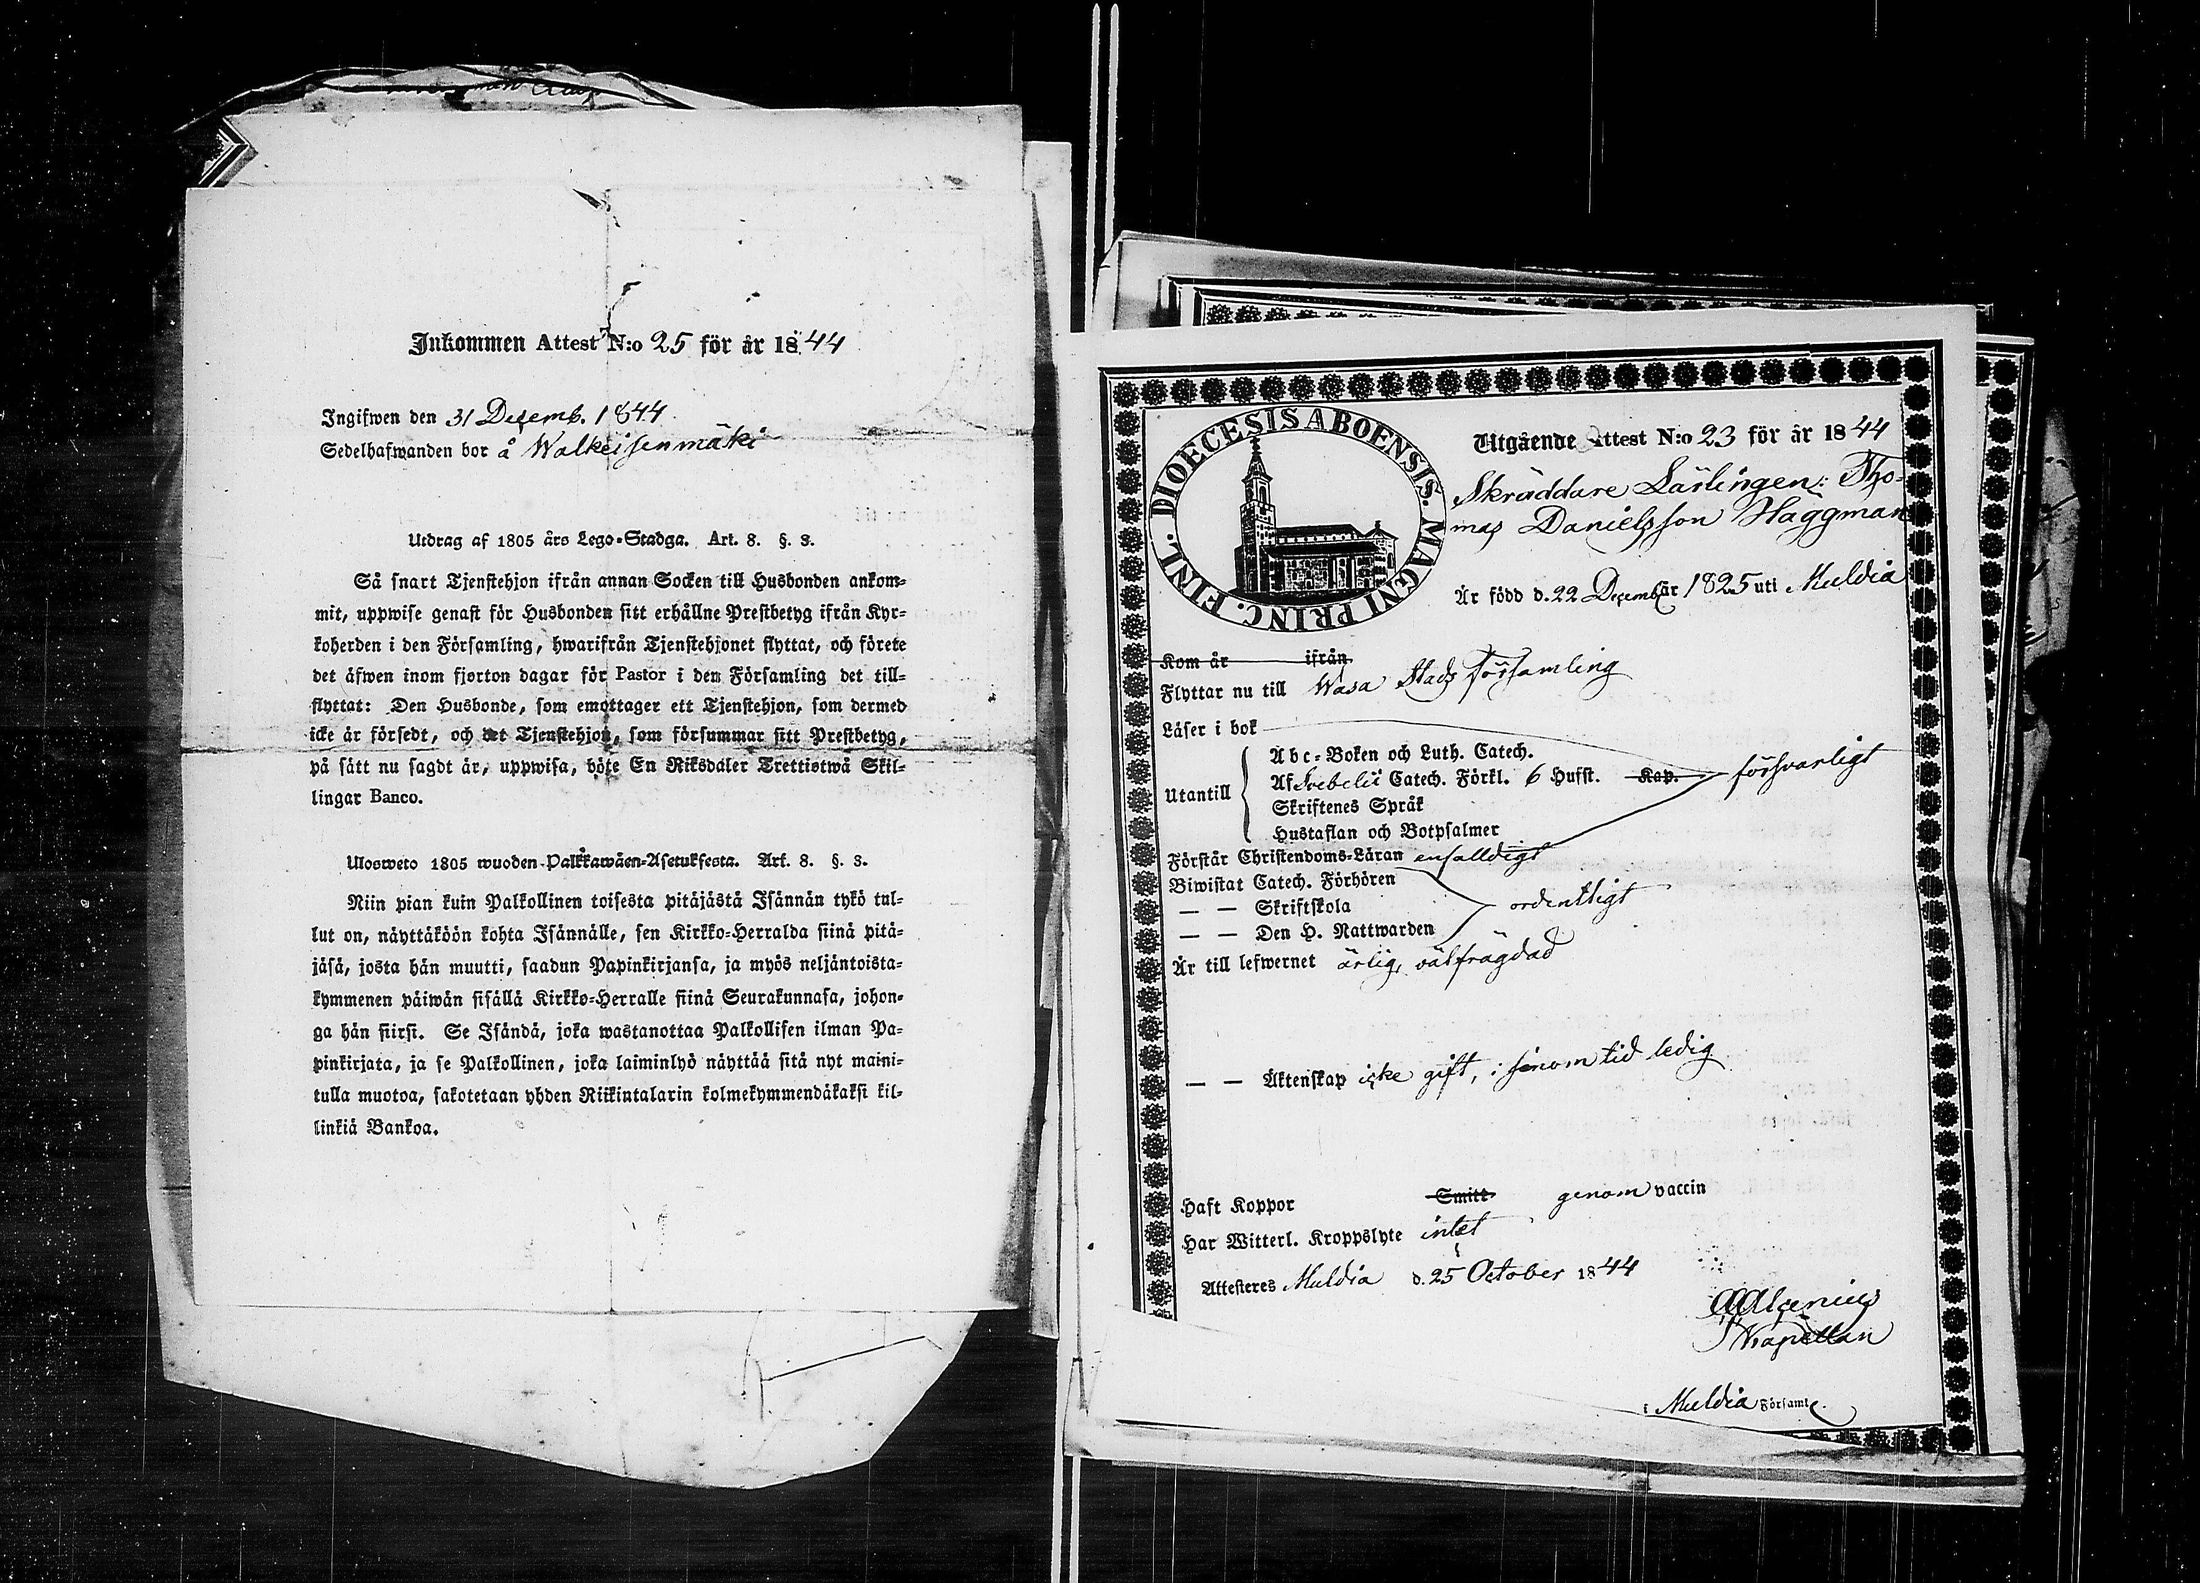 Inkommen Attest N:o 25 för år 1844
Ingifwen den 31 Decemb. 1844.
Sedelhafwanden bor å Walkeisenmäki
Utdrag af 1805 års Lego-Stadga. Art. 8. §. 3.
Så snart Tjenstehjon ifrån annan Socken till Husbonden ankom-
mit, uppwise genast för Husbonden sitt erhållne Prestbetyg ifrån Kyr-
koherden i den Församling, hwarifrån Tjenstehjonet flyttat, och förete
det äfwen inom fjorton dagar för Pastor i den Församling det till-
flyttat: Den Husbonde, som emottager ett Tjenstehjon, som dermed
icke är försedt, och det Tjenstehjon, som försummar sitt Prestbetyg,
på sätt nu sagdt är, uppwisa, böte En Riksdaler Trettiotwå Skil-
lingar Banco.
Ulosweto 1805 wuoden Palkkawäen-Asetuksesta. Art. 8. §. 3.
Niin pian kuin Palkollinen toisesta pitäjästä Isännän tykö tul-
lut on, näyttäköön kohta Isännälle, sen Kirkko-Herralda siinä pitä-
jäsä, josta hän muutti, saadun Papinkirjansa, ja myös neljäntoista-
kymmenen päiwän sisällä Kirkko-Herralle siinä Seurakunnasa, johon-
ga hän siirsi. Se Isändä, joka wastanottaa Palkollisen ilman Pa-
pinkirjata, ja se Palkollinen, joka laiminlyö näyttää sitä nyt maini-
tulla muotoa, sakotetaan yhden Riikintalarin kolmekymmendäkaksi kil-
linkiä Bankoa.
DIOECESIS ABOENSIS. MAGNI PRINC. FINL.
Utgående Attest N:o 23 för år 1844
Skräddare Lärlingen: Tho-
mas Danielsson Häggman
Är född d. 22 Decemb. år 1825 uti Muldia
Kom år ifrån
Flyttar nu till Wasa Stads Församling
Läser i bok
Utantill
Abc-Boken och Luth. Catech.
Af Svebelii Catech. Förkl. 6 Hufst. Kap.
försvarligt
Skriftenes Språk
Hustaflan och Botpsalmer
Förstår Christendoms-Läran enfalldigt
Biwistat Catech. Förhören
— — Skriftskola
ordentligt
— — Den H. Nattwarden
Är till lefwernet ärlig, välfrägdad
— — Äktenskap icke gift, i sinom tid ledig
Haft Koppor Smitt genom vaccin
Har Witterl. Kroppslyte intet
Attesteres Muldia d. 25 October 1844
Kapellan
i Muldia Församl.